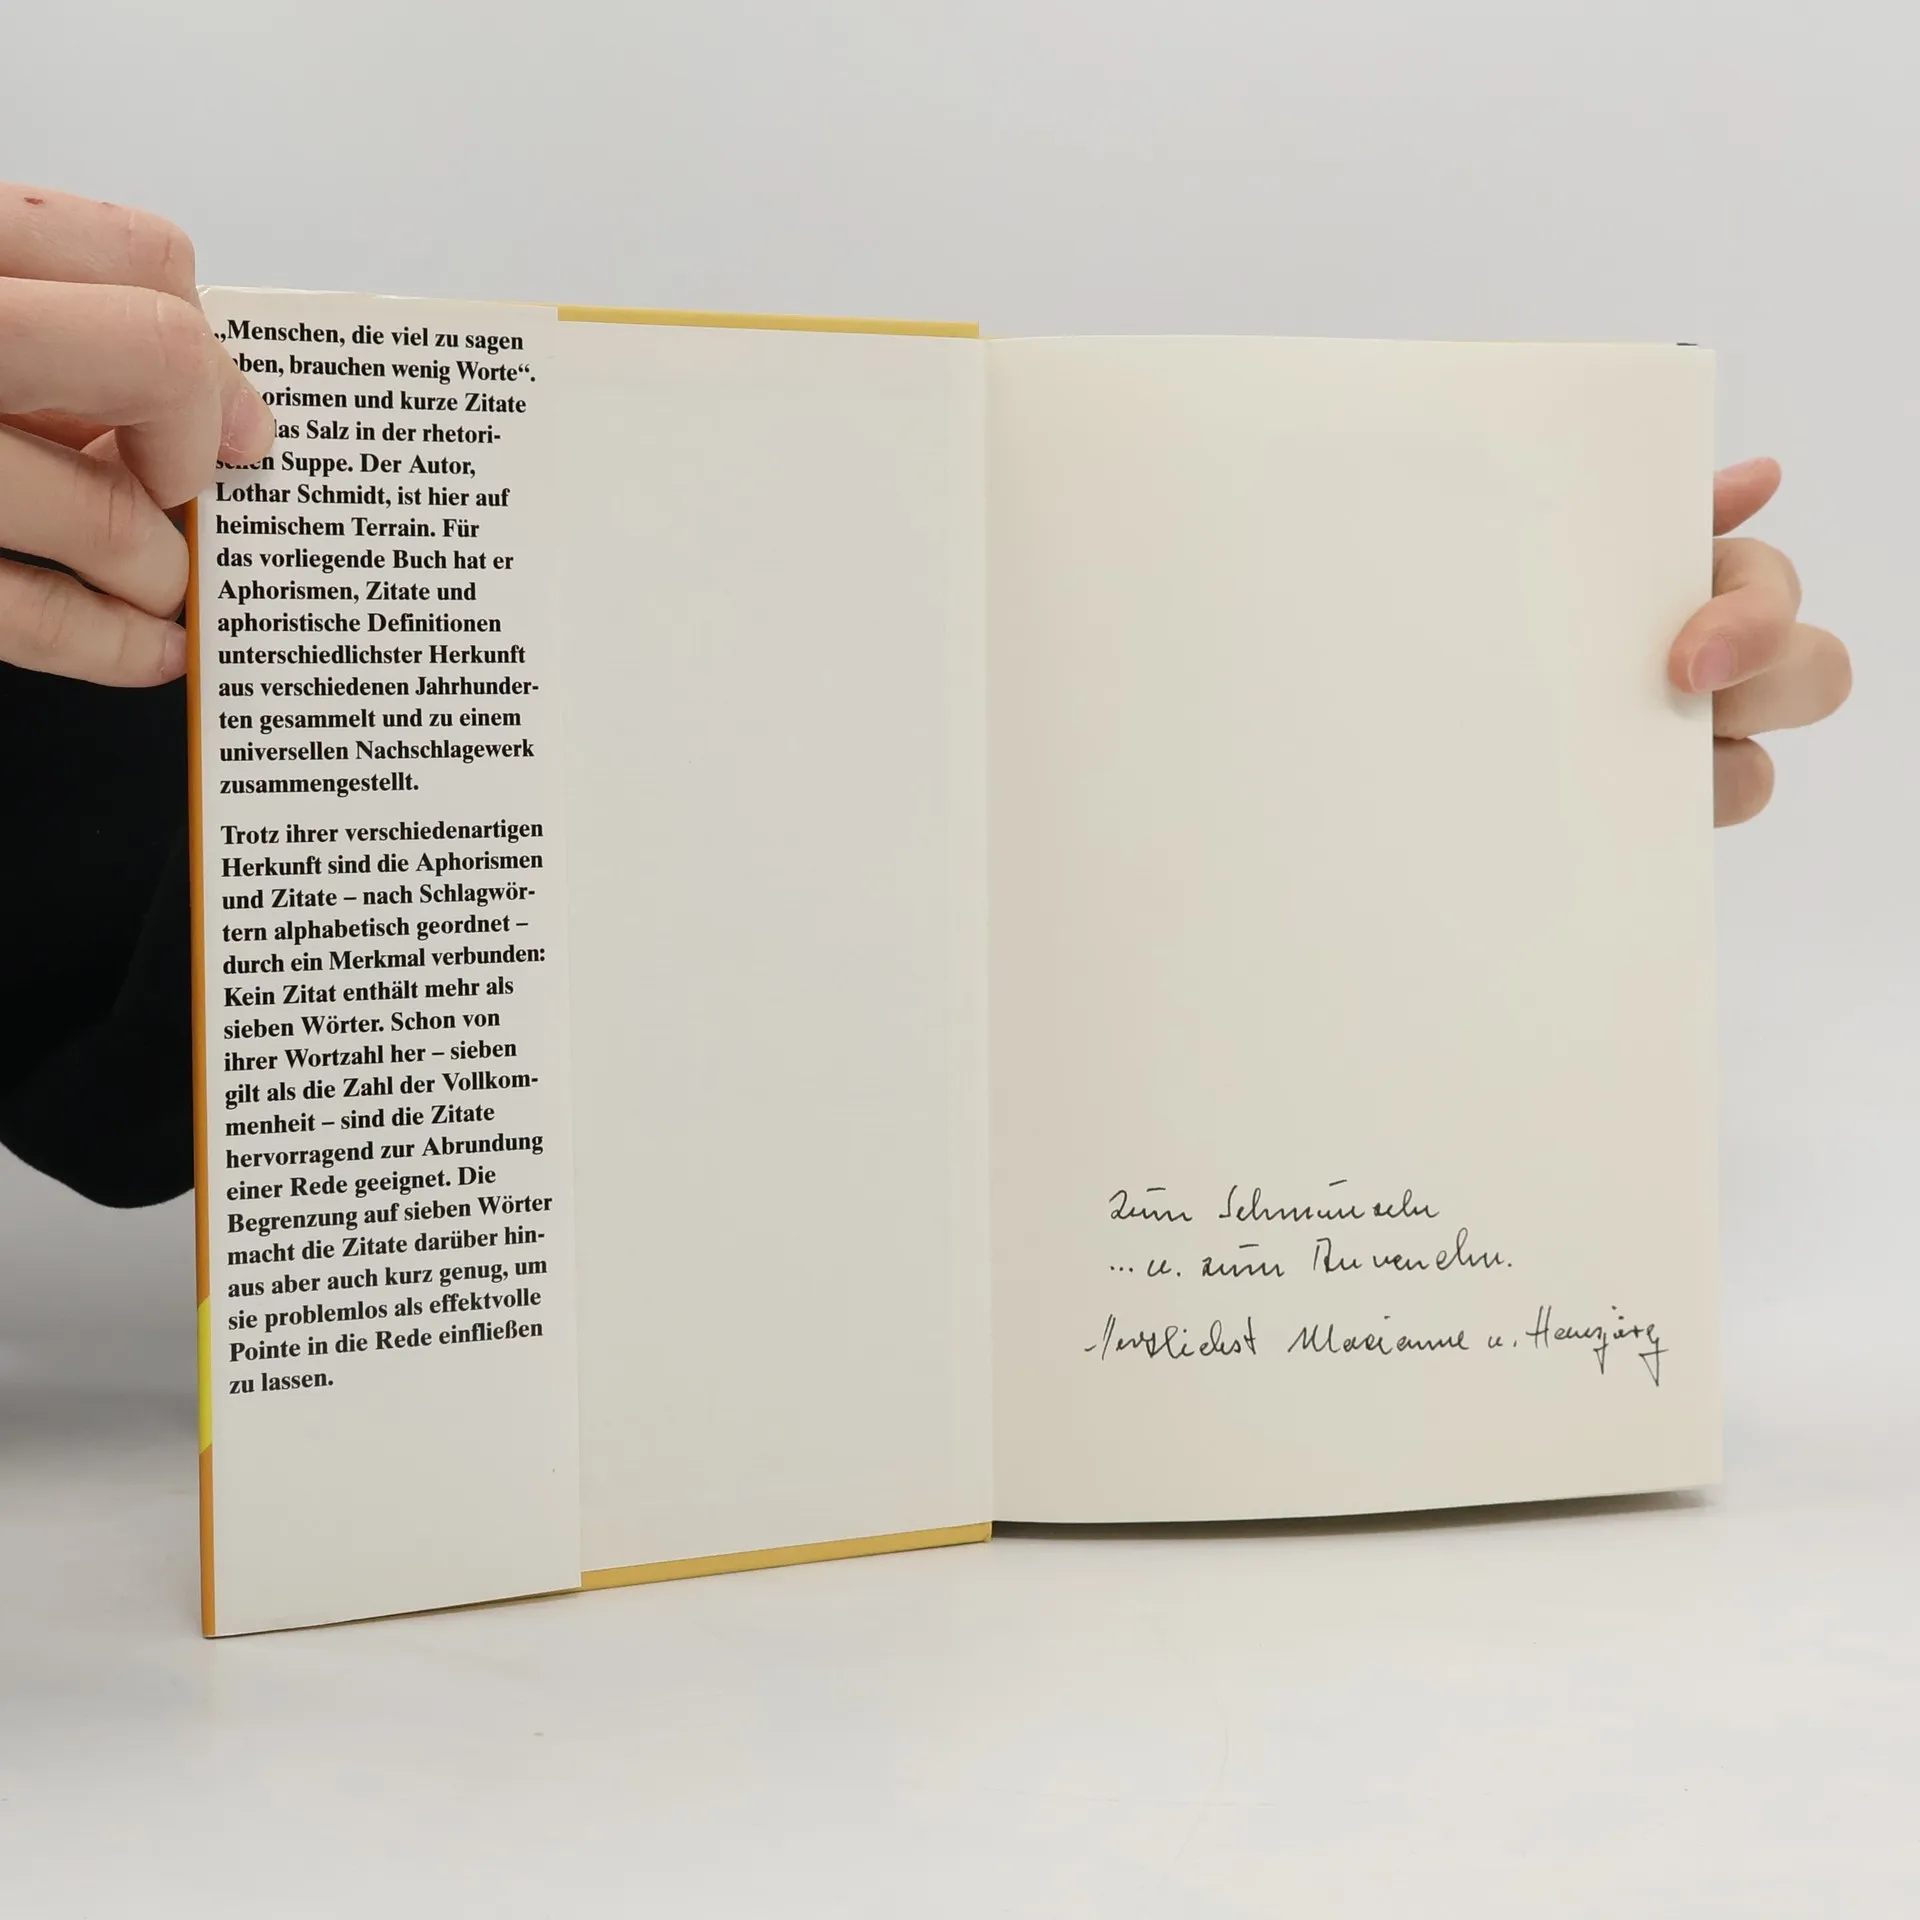 „Menschen, die viel zu sagen
ben, brauchen wenig Worte“.
orismen und kurze Zitate
las Salz in der rhetori-
schen Suppe. Der Autor,
Lothar Schmidt, ist hier auf
heimischem Terrain. Für
das vorliegende Buch hat er
Aphorismen, Zitate und
aphoristische Definitionen
unterschiedlichster Herkunft
aus verschiedenen Jahrhunder-
ten gesammelt und zu einem
universellen Nachschlagewerk
zusammengestellt.
Trotz ihrer verschiedenartigen
Herkunft sind die Aphorismen
und Zitate – nach Schlagwör-
tern alphabetisch geordnet –
durch ein Merkmal verbunden:
Kein Zitat enthält mehr als
sieben Wörter. Schon von
ihrer Wortzahl her – sieben
gilt als die Zahl der Vollkom-
menheit – sind die Zitate
hervorragend zur Abrundung
einer Rede geeignet. Die
Begrenzung auf sieben Wörter
macht die Zitate darüber hin-
aus aber auch kurz genug, um
sie problemlos als effektvolle
Pointe in die Rede einfließen
zu lassen.
Zum Schmunzeln
... u. zum Anwenden.
Herzlichst Marianne u. Hansjörg